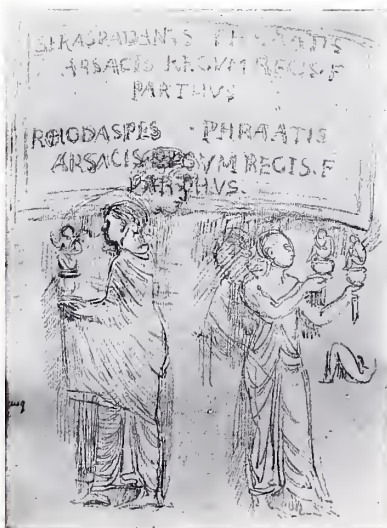 SERASPADANES PHRAATIS
ARSACIS REGVM REGIS·F
PARTHVS
RHODASPES PHRAATIS
ARSACIS REGVM REGIS·F
PARTHVS·